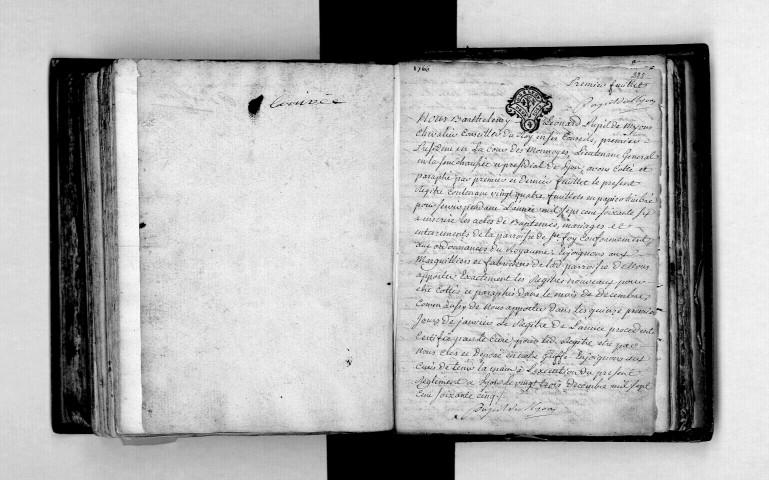 1766
335
Premier feuillet
Pupil de Myons
Nous Barthelemy Leonard Pupil de Myons
chevalier Conseiller du Roy en ses Conseils, premier
President en La cour des Monnoyes, Lieutenant General
en la senechaussée et presidial de Lyon, avons Cotté et
paraphé par premier et dernier feuillet le present
Registre contenant vingt quatre feuillets en papier timbré
pour servir pendant L'année mil sept cent soixante six
a inscrire les actes de Baptemes, mariages et
enterrements de la parroisse de Ste foy Conformement
aux ordonnances du Royaume Enjoignons aux
Marguilliers et fabriciens de lad. parroisse de Nous
apporter Exactement les Registres nouveaux pour
etre Cottés et paraphés dans le mois de decembre,
Comme aussy de Nous apporter dans les quinze premiers
Jours de janvier le Registre de L'année precedente
Certifié par le Curé pour led. Registre etre par
Nous clos et deposé en notre Greffe Enjoignons aux
Curés de tenir la main à L'execution du present
Reglement a Lyon le vingt trois decembre mil sept
Cent soixante cinq.
Pupil de Myons